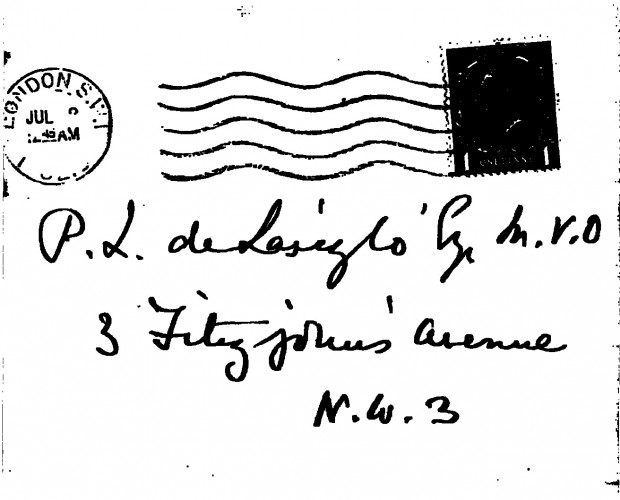 LONDON S.W.1
JUL
12.45 AM
P. L. de László Esq. M.V.O
3 Fitzjohns' Avenue
N.W.3